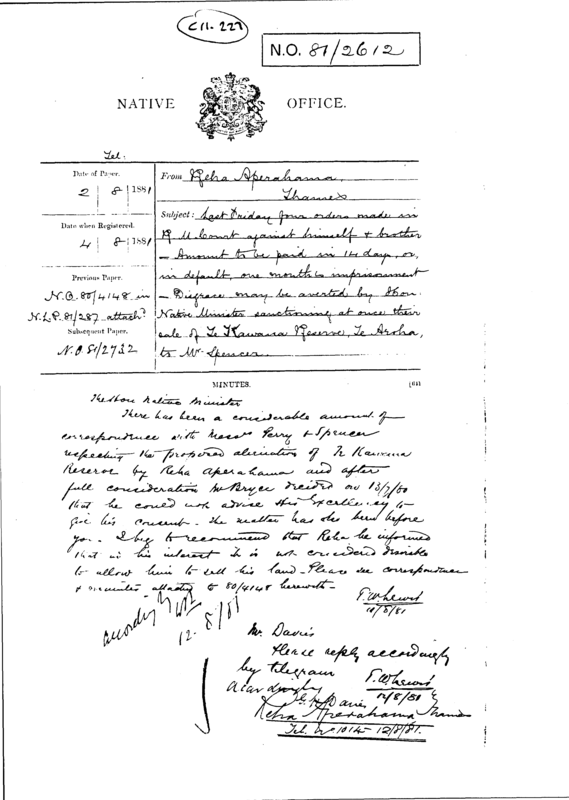 C11-227
N.O. 81/2612
NATIVE OFFICE.
Tel.
Date of Paper.
2 8 1881
Date when Registered.
4 8 1881
Previous Paper.
N.O. 80/4148 in
N.L.P. 81/287 attachd
Subsequent Paper.
N.O. 81/2732
From Reha Aperahama,
Thames
Subject: Last Friday four orders made in
R.M. Court against himself & brother
– Amount to be paid in 14 days, or,
in default, one month's imprisonment
– Disgrace may be averted by Hon.
Native Minister sanctioning at once their
sale of Te Kawana Reserve, Te Aroha,
to Mr Spencer.
MINUTES.
The Hon Native Minister
There has been a considerable amount of
correspondence with Messrs Perry & Spencer
respecting the proposed alienation of Te Kawana
Reserve by Reha Aperahama and after
full consideration Mr Bryce decided on 13/7/80
that he could not advise His Excellency to
give his consent. The matter has also been before
you. I beg to recommend that Reha be informed
that in his interest it is not considered desirable
to allow him to sell his land. Please see correspondence
& minutes attached to 80/4148 herewith.
T.W. Lewis
12/8/81
12. 8/81
Mr. Davis
Please reply accordingly
by telegram
T.W. Lewis
12/8/81
Reha Aperahama Thames
Tel. No 1014 12/8/81.